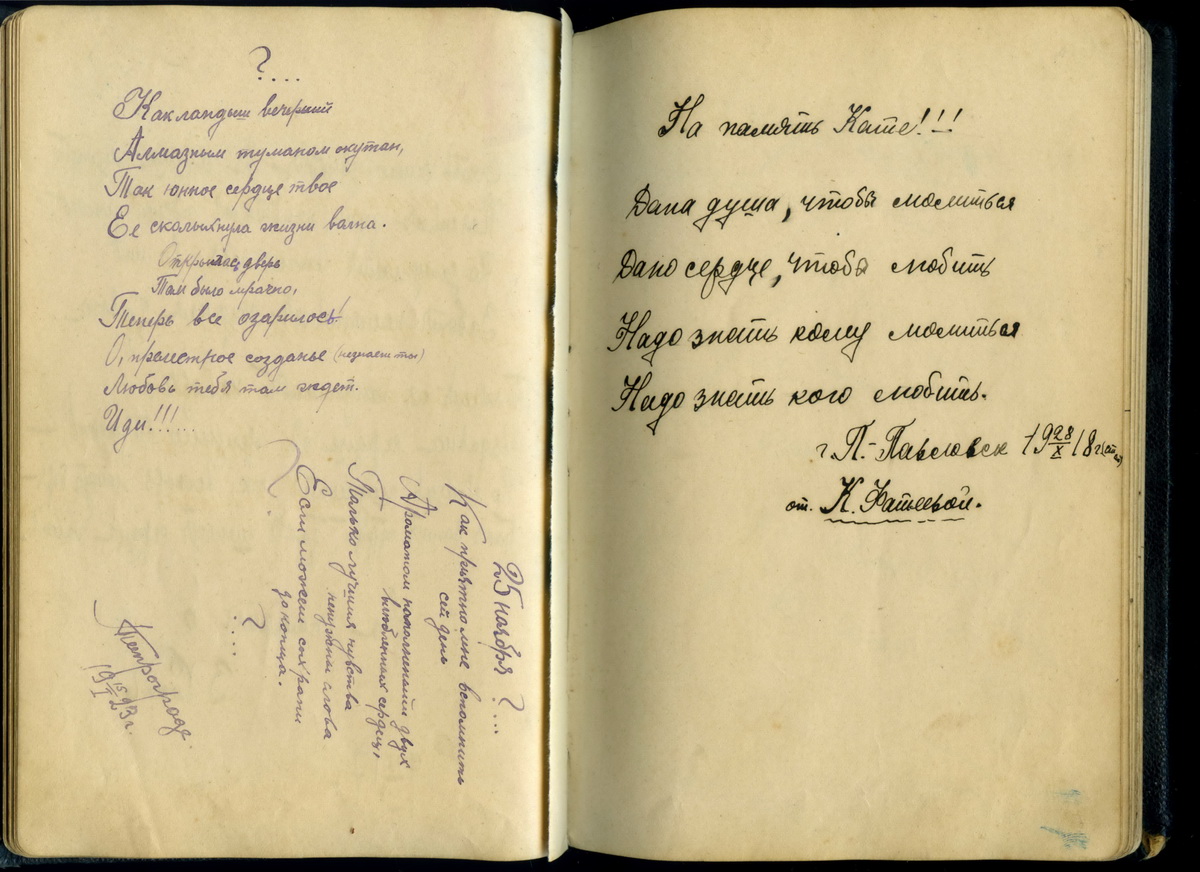 ?...
Как ландыш вечерний
Алмазным туманом окутан,
Так юнное сердце твое
Ее сколыхнула жизни волна.
Открылась дверь
Там было мрачно,
Теперь все озарилось!
О, прелестное созданье (незнаешь ты)
Любовь тебя там ждет.
Иди!!!...
25 ноября ?...
Как приятно мне вспомнить
сей день
Ароматом двух
влюбленных сердец,
Только лучшия чувства
ненужны слова
Если можешь сохрани
до конца.
?...
Петроград.
19 15/I 23 г.
На память Кате!!!
Дана душа, чтобы молиться
Дано сердце, чтобы любить
Надо знать кому молиться
Надо знать кого любить.
г. П.-Павловск 19 28/X 18 г.
от. К. Фатеевой.